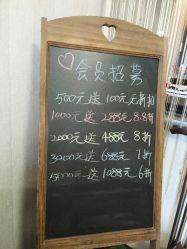 会员招募
500元送100元无折扣
1000元送288元8.8折
2000元送488元8折
3000元送688元7折
5000元送1088元6折